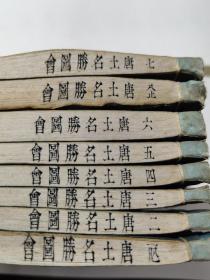 七 唐土名勝圖會
唐土名勝圖會
六 唐土名勝圖會
五 唐土名勝圖會
四 唐土名勝圖會
三 唐土名勝圖會
二 唐土名勝圖會
唐土名勝圖會